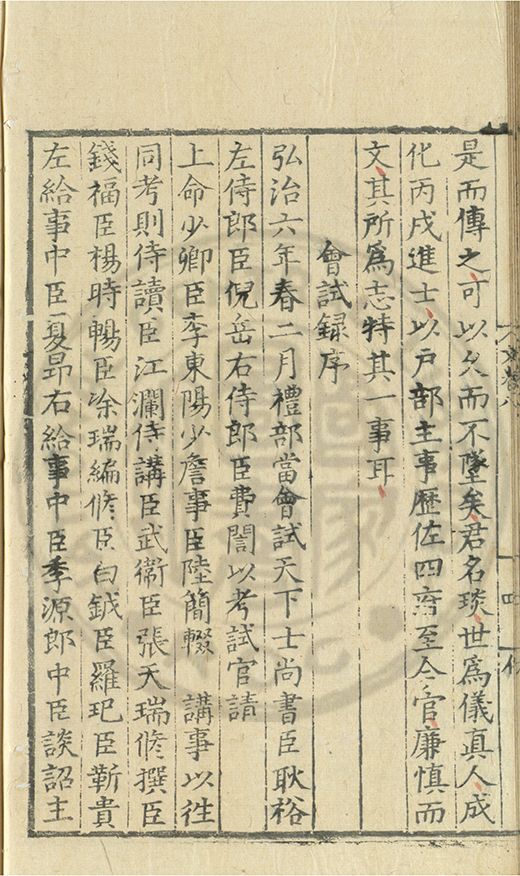 是而傳之可以久而不墜矣君名琰世爲儀真人成
化丙戌進士以戶部主事歷佐四府至今官廉慎而
文其所爲志特其一事耳
會試録序
弘治六年春二月禮部當會試天下士尚書臣耿裕
左侍郎臣倪岳右侍郎臣費誾以考試官請
上命少卿臣李東陽少詹事臣陸簡輟 講事以徃
同考則侍讀臣江瀾侍講臣武衛臣張天瑞修撰臣
錢福臣楊時暢臣涂瑞編修臣白鉞臣羅玘臣靳貴
左給事中臣夏昂右給事中臣季源郎中臣談詔主